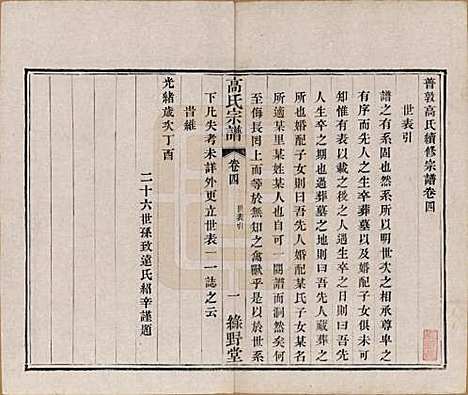 普敦高氏續修宗譜卷四
世表引
譜之有系固也然系以明世次之相承尊卑之
有序而人之生卒葬墓以及婚配子女俱未可
知惟有表以載之後之人遇生卒之日則曰吾先
人生卒之期也遇葬墓之地則曰吾先人藏葬之
所也婚配子女則曰吾先人婚配某氏子女某名
所適某里某姓某人亦可一閱譜而洞然矣何
至侮長罔上而等於無知之禽獸乎是以於世系
下凡失考未詳外更立世表一一誌之云
旹維
光緒歲次丁酉
二十六世孫致遠氏紹辛謹題
高氏宗譜
卷四
世表引
一
綠野堂